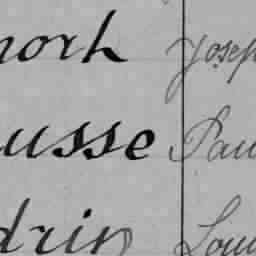 north Josep
usse Pau
drin Loui